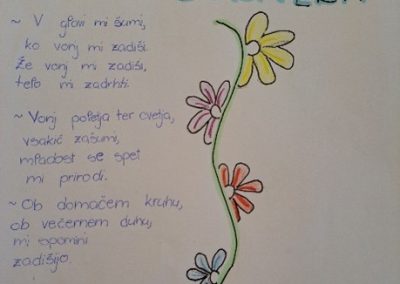 ~ V glavi mi šumi,
ko vonj mi zadiši.
Že vonj mi zadiši,
telo mi zadrhti.
~ Vonj poletja ter cvetja,
vsakič zašumi,
mladost se spet
mi prirodi.
~ Ob domačem kruhu,
ob večernem duhu,
mi spomini
zadišijo.